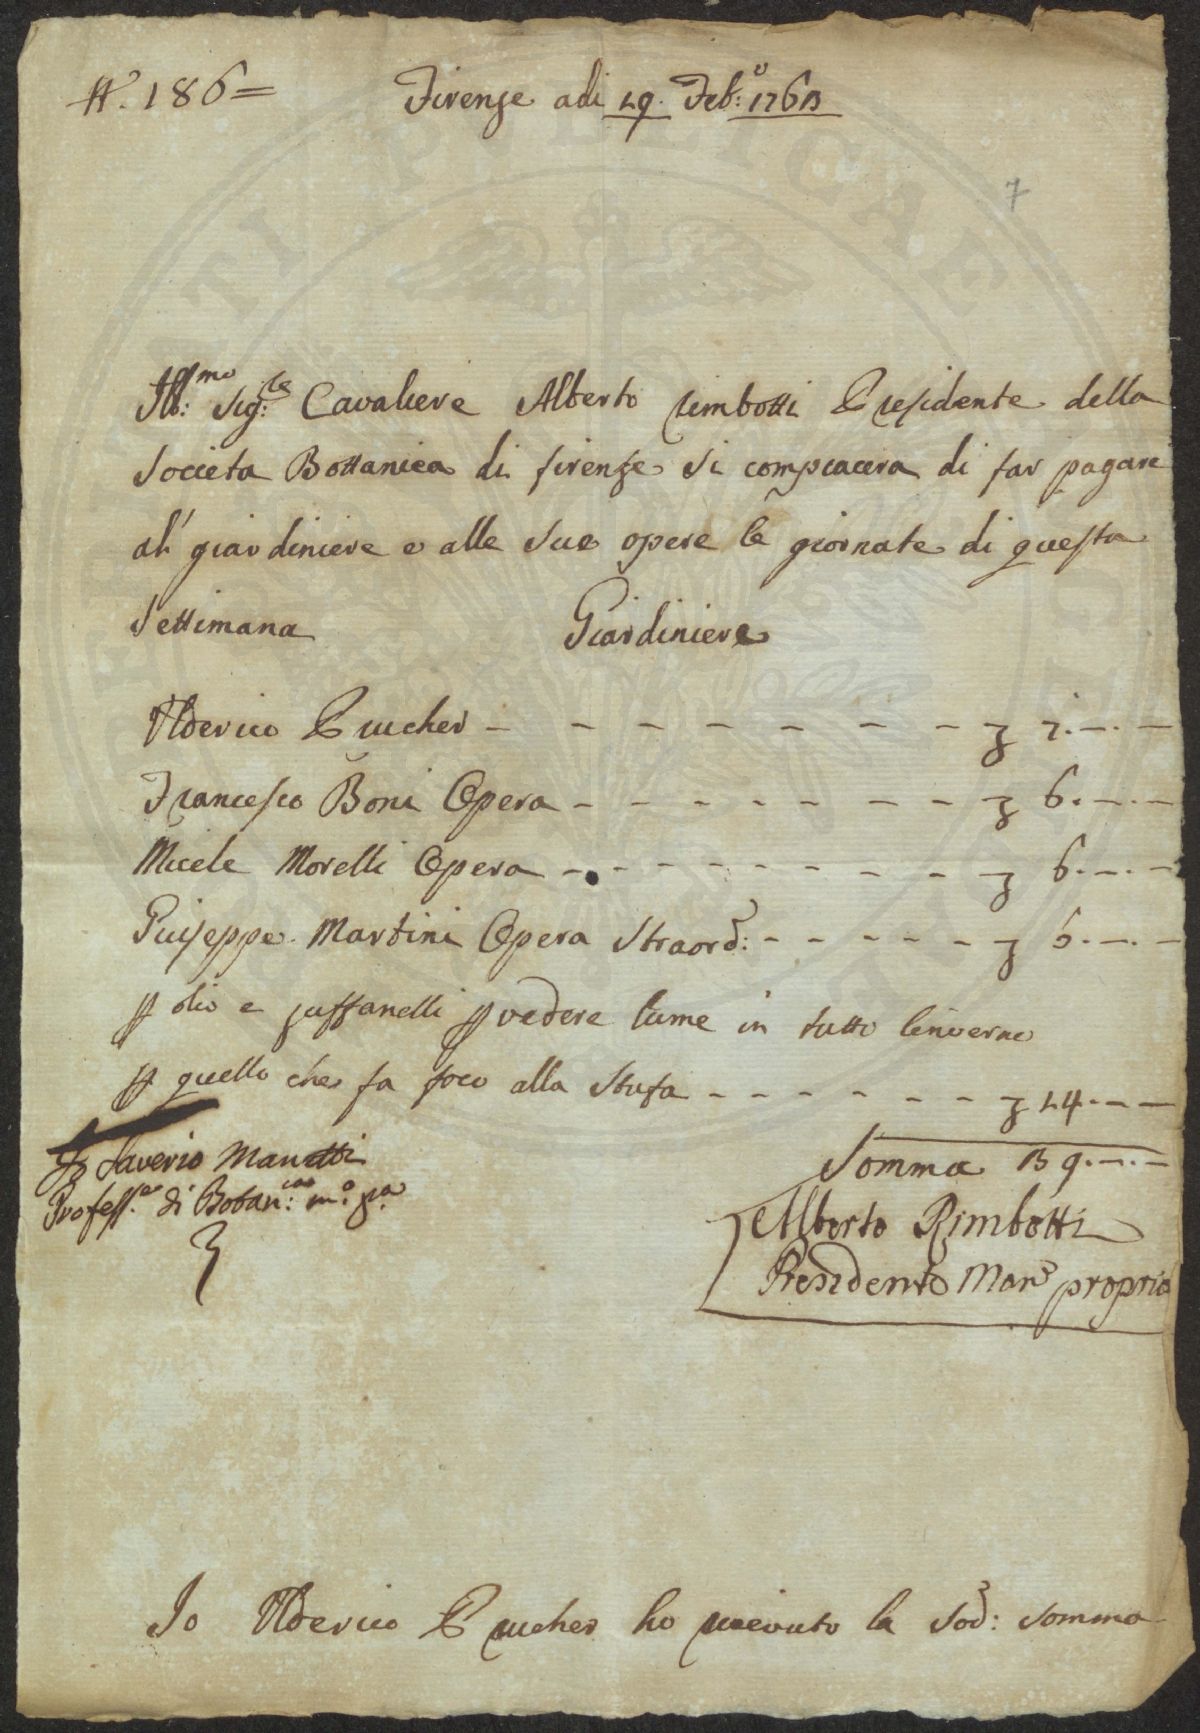 N. 186=
Firenze adi 19. Feb:o 1763
7
Ill:mo Sig:re Cavaliere Alberto rimbotti Presidente della
Societa Bottanica di firenze si compiacera di far pagare
al' giardiniere e alle sue opere le giornate di questa
Settimana Giardiniere
Ulderico Prucher - - - - - - - - £ 7.-.-
Francesco Boni Opera - - - - - - - - £ 6.-.-
Micele Morelli Opera - - - - - - - - £ 6.-.-
Guiseppe Martini Opera Straord: - - - - - - £ 6.-.-
p olio e zuffanelli p vedere lume in tutto linverno
p quello che fa foco alla Stufa - - - - - - £ 14.-.-
Somma 39.-.-
Io Saverio Manetti
Profess.e di Botan:ca m.o p.a
Alberto Rimbotti
Presidente Man. propria
Io Ulderico Prucher ho ricevuto la sod: somma